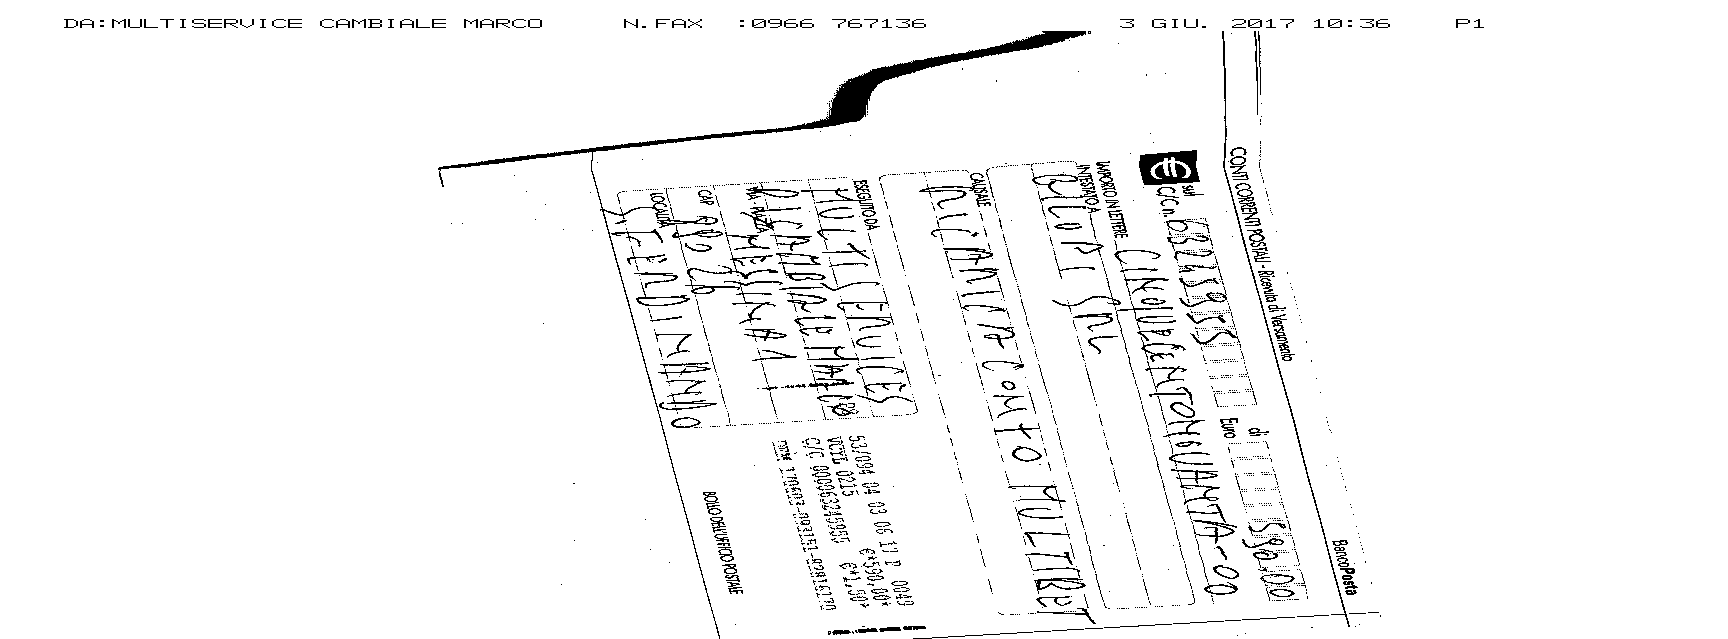 DA:MULTISERVICE CAMBIALE MARCO N.FAX :0966 767136 3 GIU. 2017 10:36 P1
CONTI CORRENTI POSTALI - Ricevuta di Versamento
BancoPosta
sul C/C n. 63245955 di Euro 590,00
IMPORTO IN LETTERE CINQUECENTONOVANTA-00
INTESTATO A
SRL
CAUSALE
RICARICA CONTO MULTIRET
ESEGUITO DA
MULTISERVICES
DI CAMBIALE MARCO
VIA - PIAZZA MESSINA 1
CAP 89026
LOCALITÀ S. FERDINANDO
53/094 04 03 06 17 P 0040
VCYL 0215 €*590,00*
C/C 000063245955 €*1,50*
BOLLO DELL'UFFICIO POSTALE